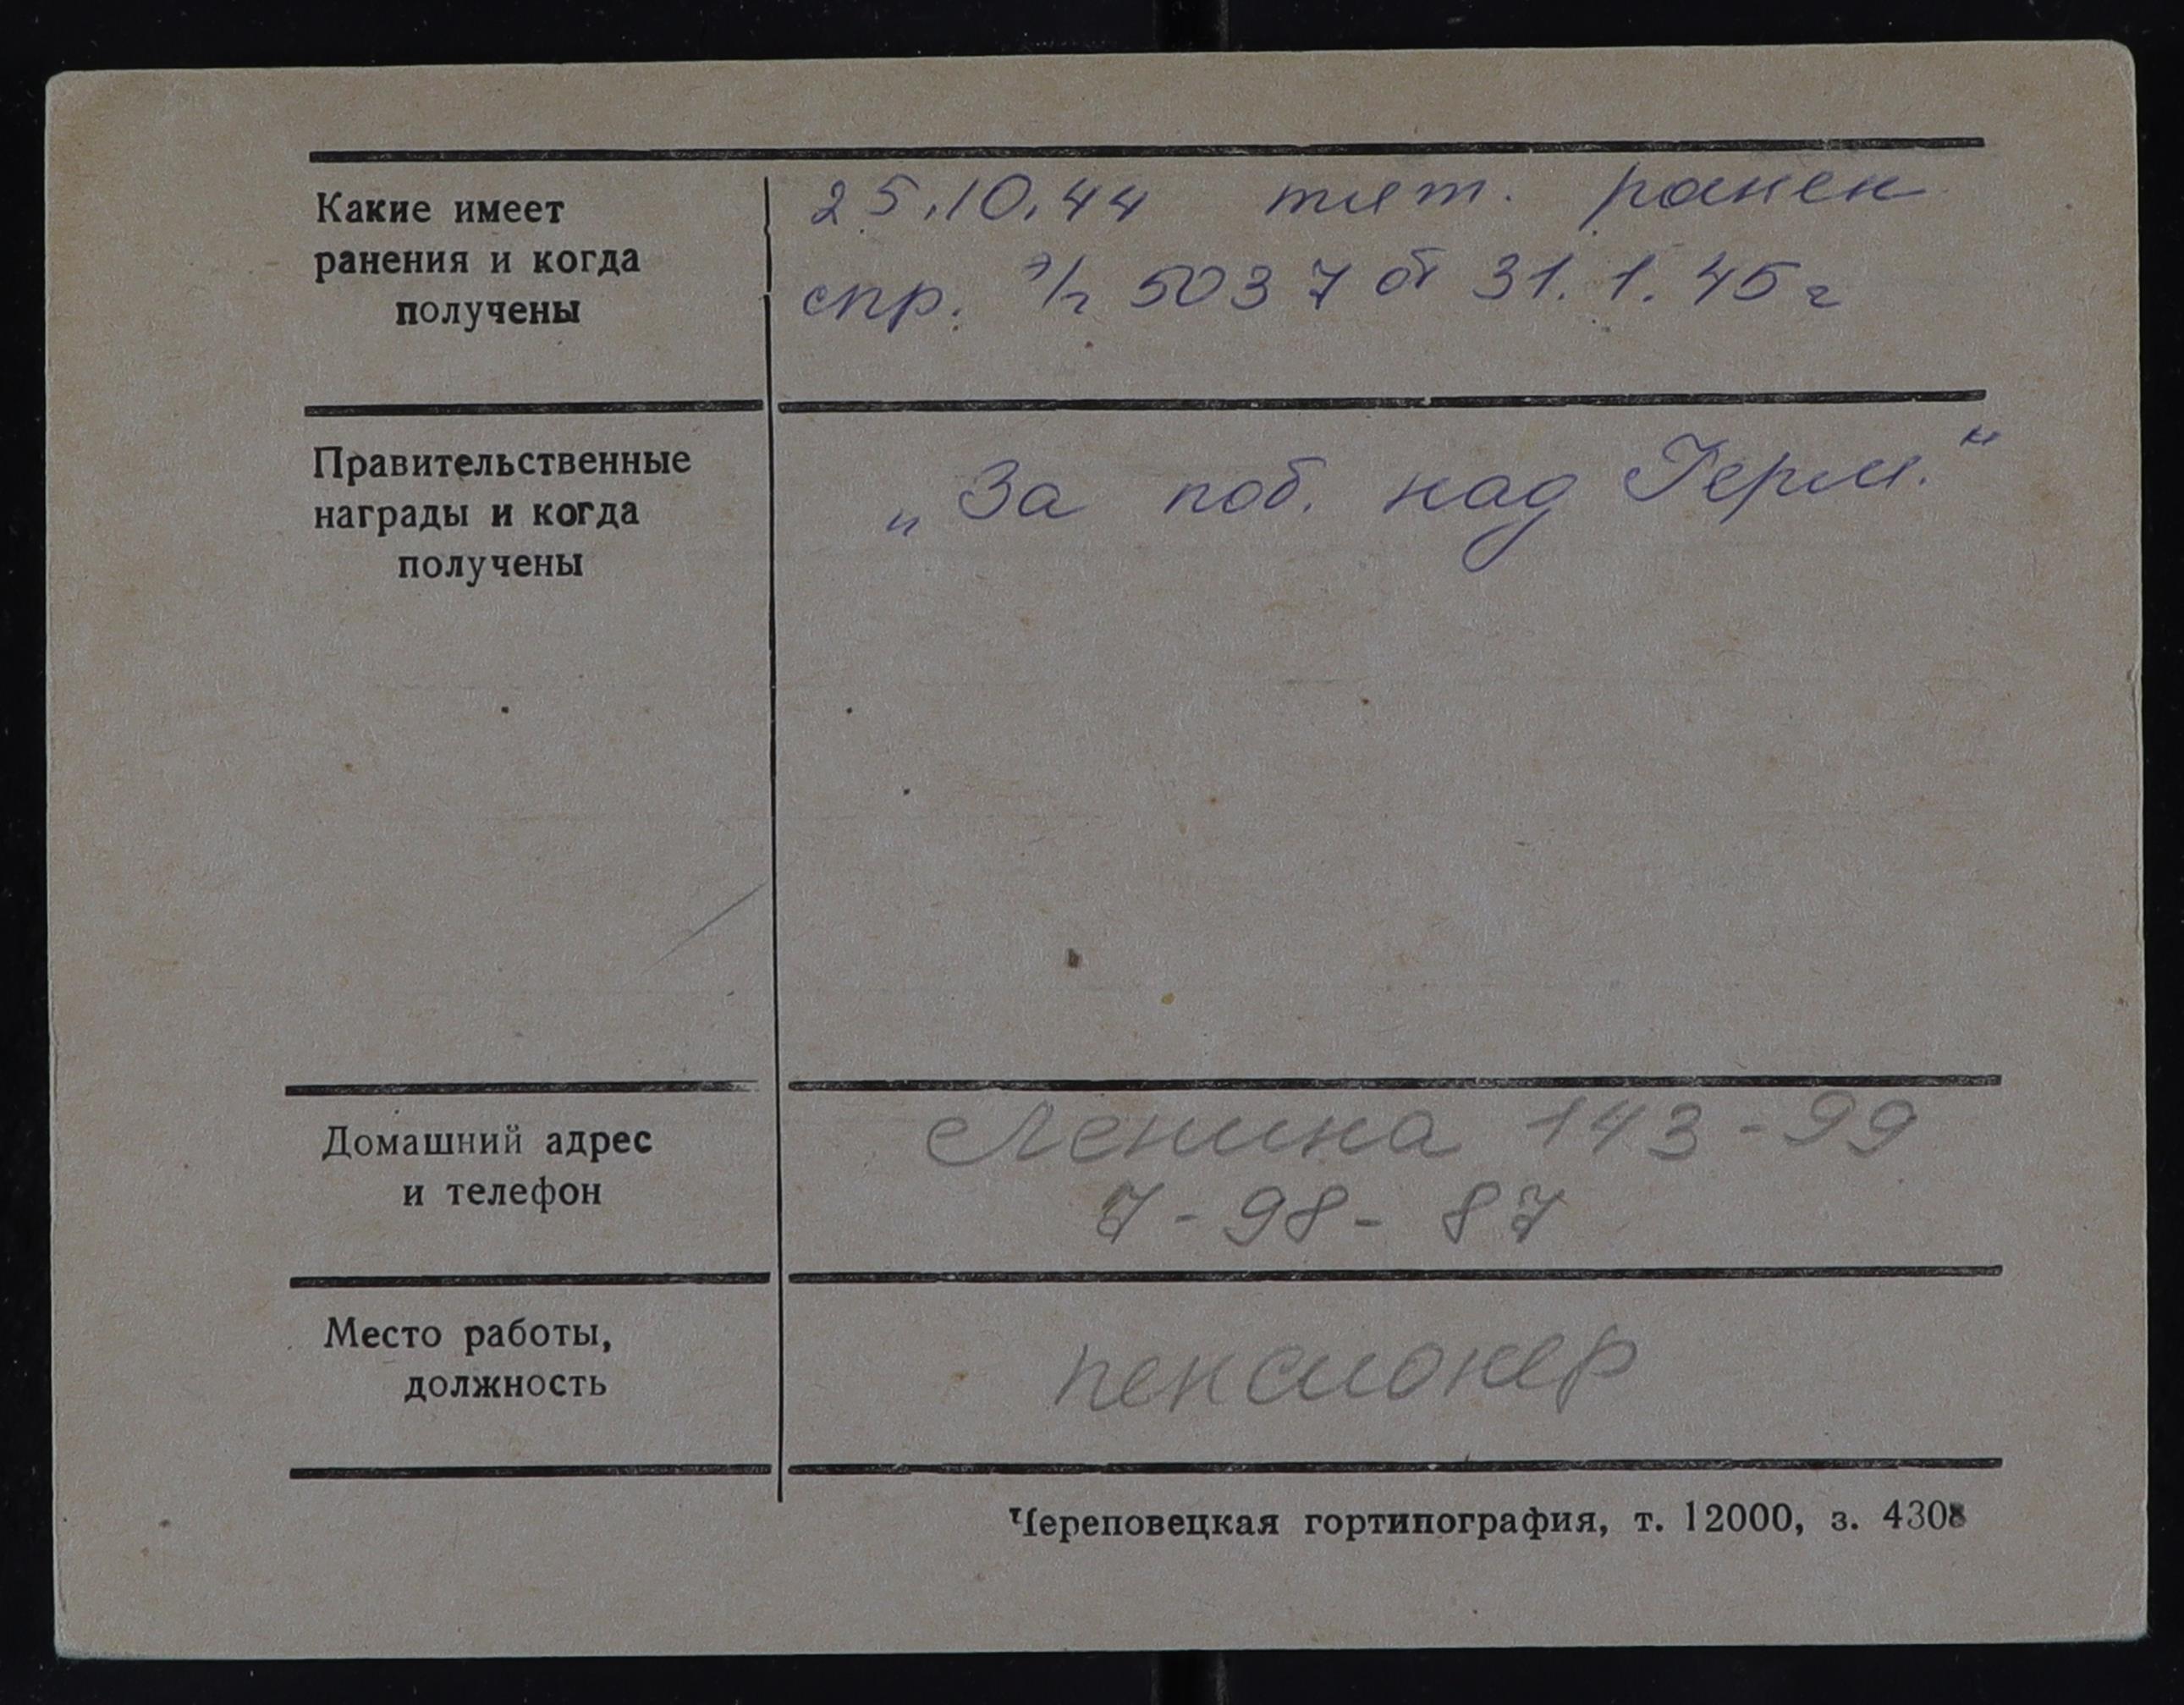 Какие имеет
ранения и когда
получены
25.10.44 тяж. ранен
спр. э/г 5037 от 31.1.45 г
Правительственные
награды и когда
получены
„За поб. над Герм.“
Домашний адрес
и телефон
Ленина 143-99
7-98-87
Место работы,
должность
пенсионер
Череповецкая гортипография, т. 12000, з. 4308